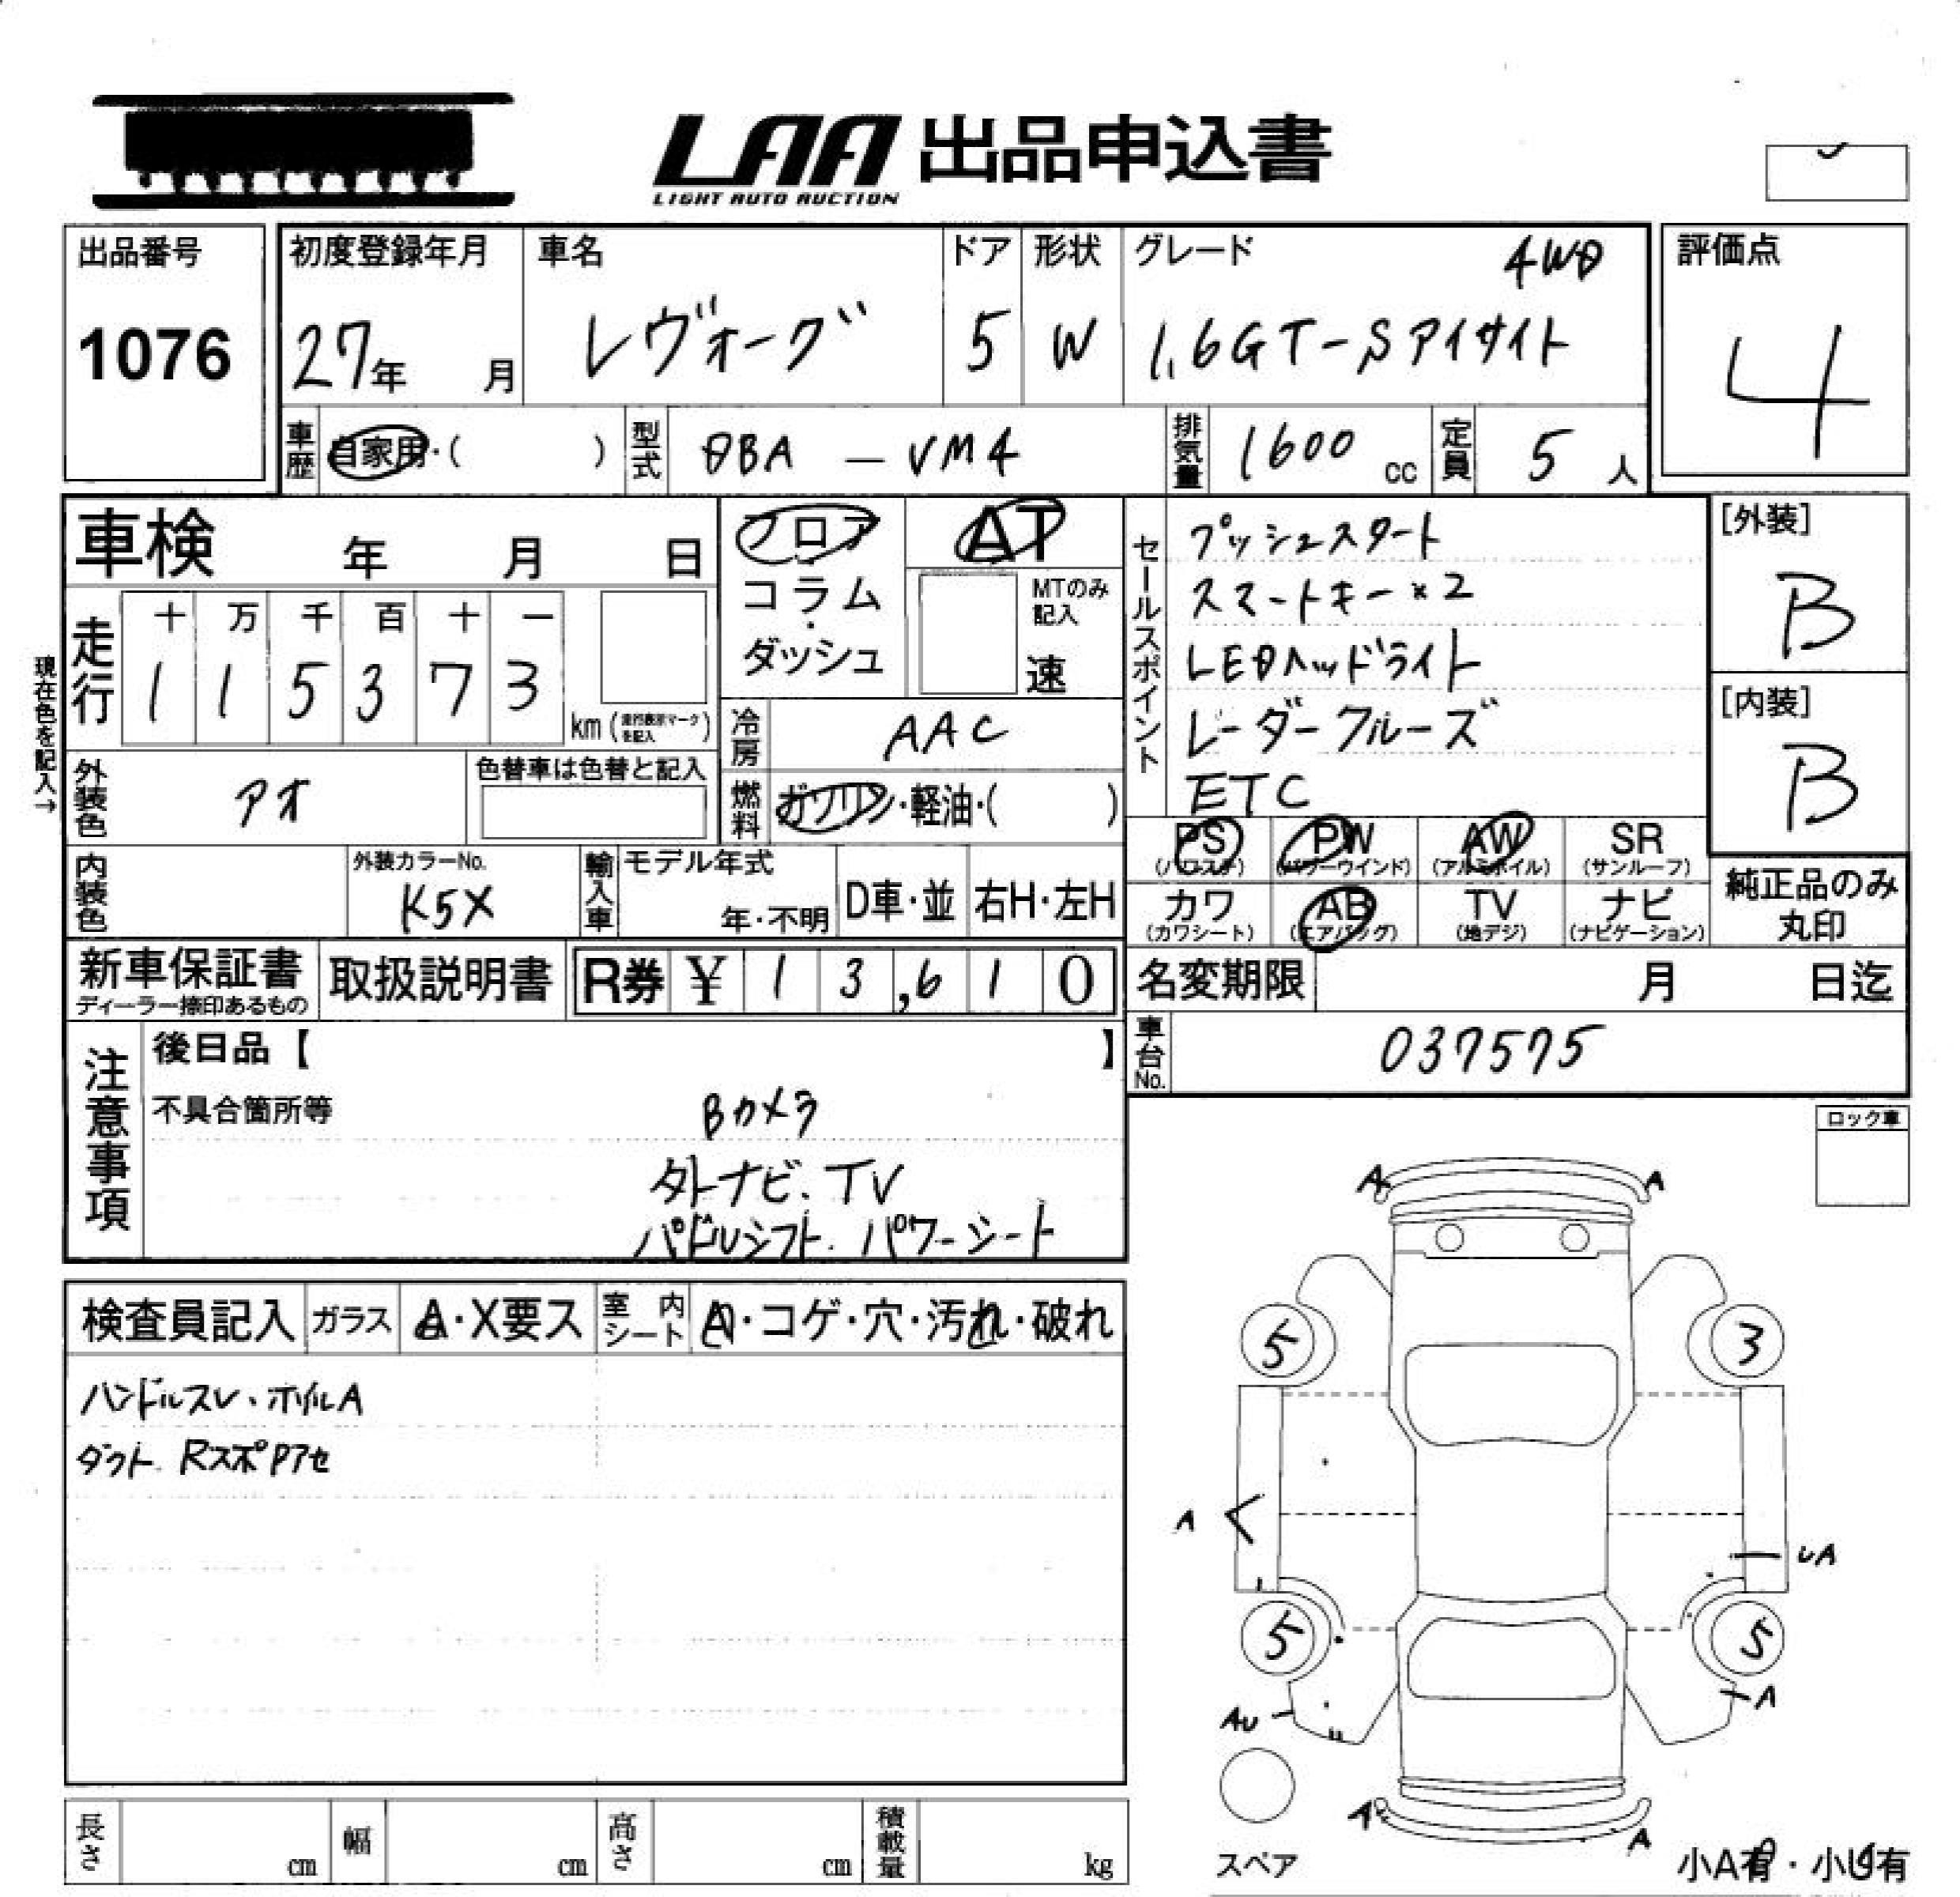 LAA 出品申込書
LIGHT AUTO AUCTION
出品番号
1076
初度登録年月
27年 月
車名
レヴォーグ
ドア
5
形状
W
グレード
4WD
1.6GT-Sアイサイト
評価点
4
車歴
自家用・( )
型式
DBA - VM4
排気量
1600 cc
定員
5 人
車検 年 月 日
フロア
コラム
・
ダッシュ
AT
MTのみ
記入
速
セールスポイント
プッシュスタート
スマートキー×2
LEDヘッドライト
レーダークルーズ
ETC
[外装]
B
[内装]
B
現在色を記入→
走行
十 万 千 百 十 一
1 1 5 3 7 3
km (走行表示マークを記入)
冷房
AAC
燃料
ガソリン・軽油・( )
外装色
アオ
色替車は色替と記入
内装色
外装カラーNo.
K5X
輸入車
モデル年式
年・不明
D車・並
右H・左H
PS
(パワステ)
PW
(パワーウインド)
AW
(アルミホイル)
SR
(サンルーフ)
カワ
(カワシート)
AB
(エアバッグ)
TV
(地デジ)
ナビ
(ナビゲーション)
純正品のみ
丸印
新車保証書
ディーラー捺印あるもの
取扱説明書
R券 ¥ 1 3,6 1 0
名変期限 月 日迄
車台No.
037575
注意事項
後日品【 】
不具合箇所等
Bカメラ
外ナビ、TV
パドルシフト、パワーシート
ロック車
検査員記入
ガラス
A・X要ス
室内シート
A・コゲ・穴・汚れ・破れ
ハンドルスレ、ホイルA
ダクト、RスポPアセ
A A
5 3
A
UA
5 5
AU
A
A
A
スペア
小A有・小U有
長さ cm
幅 cm
高さ cm
積載量 kg